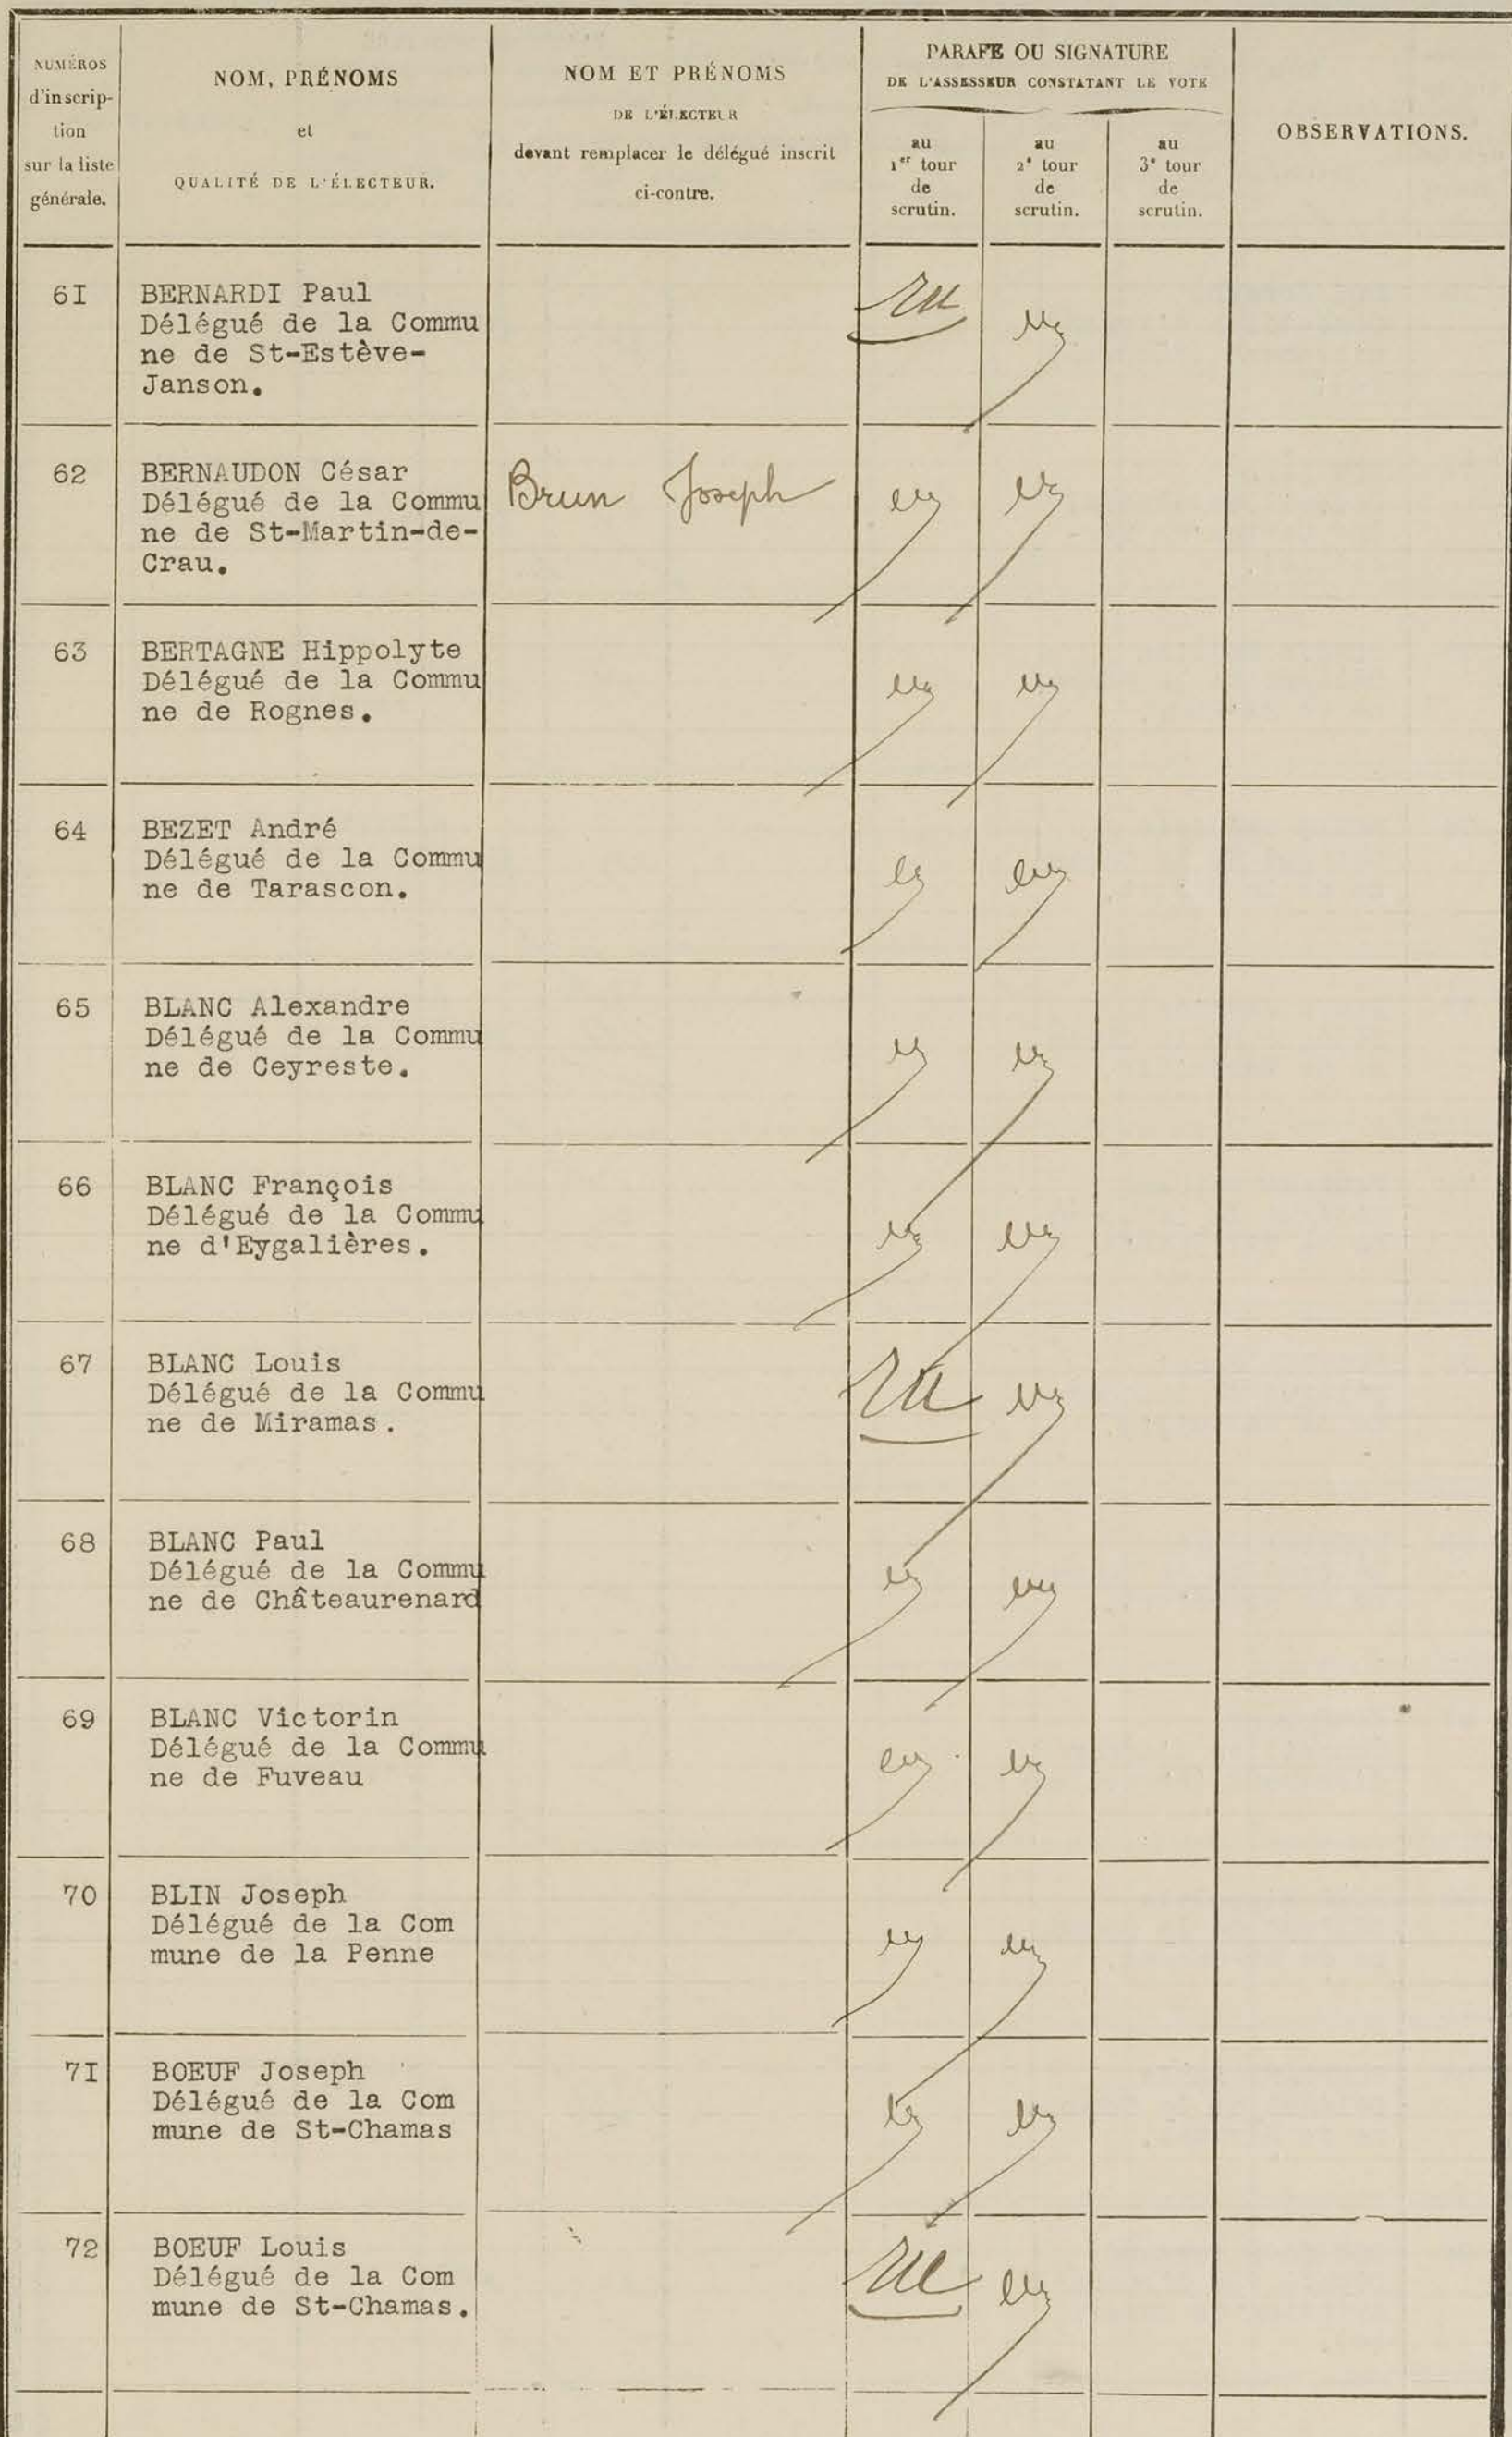 NUMÉROS
d'inscrip-
tion
sur la liste
générale.
NOM, PRÉNOMS
et
QUALITÉ DE L'ÉLECTEUR.
NOM ET PRÉNOMS
DE L'ÉLECTEUR
devant remplacer le délégué inscrit
ci-contre.
PARAFE OU SIGNATURE
DE L'ASSESSEUR CONSTATANT LE VOTE
au
1er tour
de
scrutin.
au
2e tour
de
scrutin.
au
3e tour
de
scrutin.
OBSERVATIONS.
6I
BERNARDI Paul
Délégué de la Commu
ne de St-Estève-
Janson.
62
BERNAUDON César
Délégué de la Commu
ne de St-Martin-de-
Crau.
Brun Joseph
63
BERTAGNE Hippolyte
Délégué de la Commu
ne de Rognes.
64
BEZET André
Délégué de la Commu
ne de Tarascon.
65
BLANC Alexandre
Délégué de la Commu
ne de Ceyreste.
66
BLANC François
Délégué de la Commu
ne d'Eygalières.
67
BLANC Louis
Délégué de la Commu
ne de Miramas.
68
BLANC Paul
Délégué de la Commu
ne de Châteaurenard
69
BLANC Victorin
Délégué de la Commu
ne de Fuveau
70
BLIN Joseph
Délégué de la Com
mune de la Penne
7I
BOEUF Joseph
Délégué de la Com
mune de St-Chamas
72
BOEUF Louis
Délégué de la Com
mune de St-Chamas.